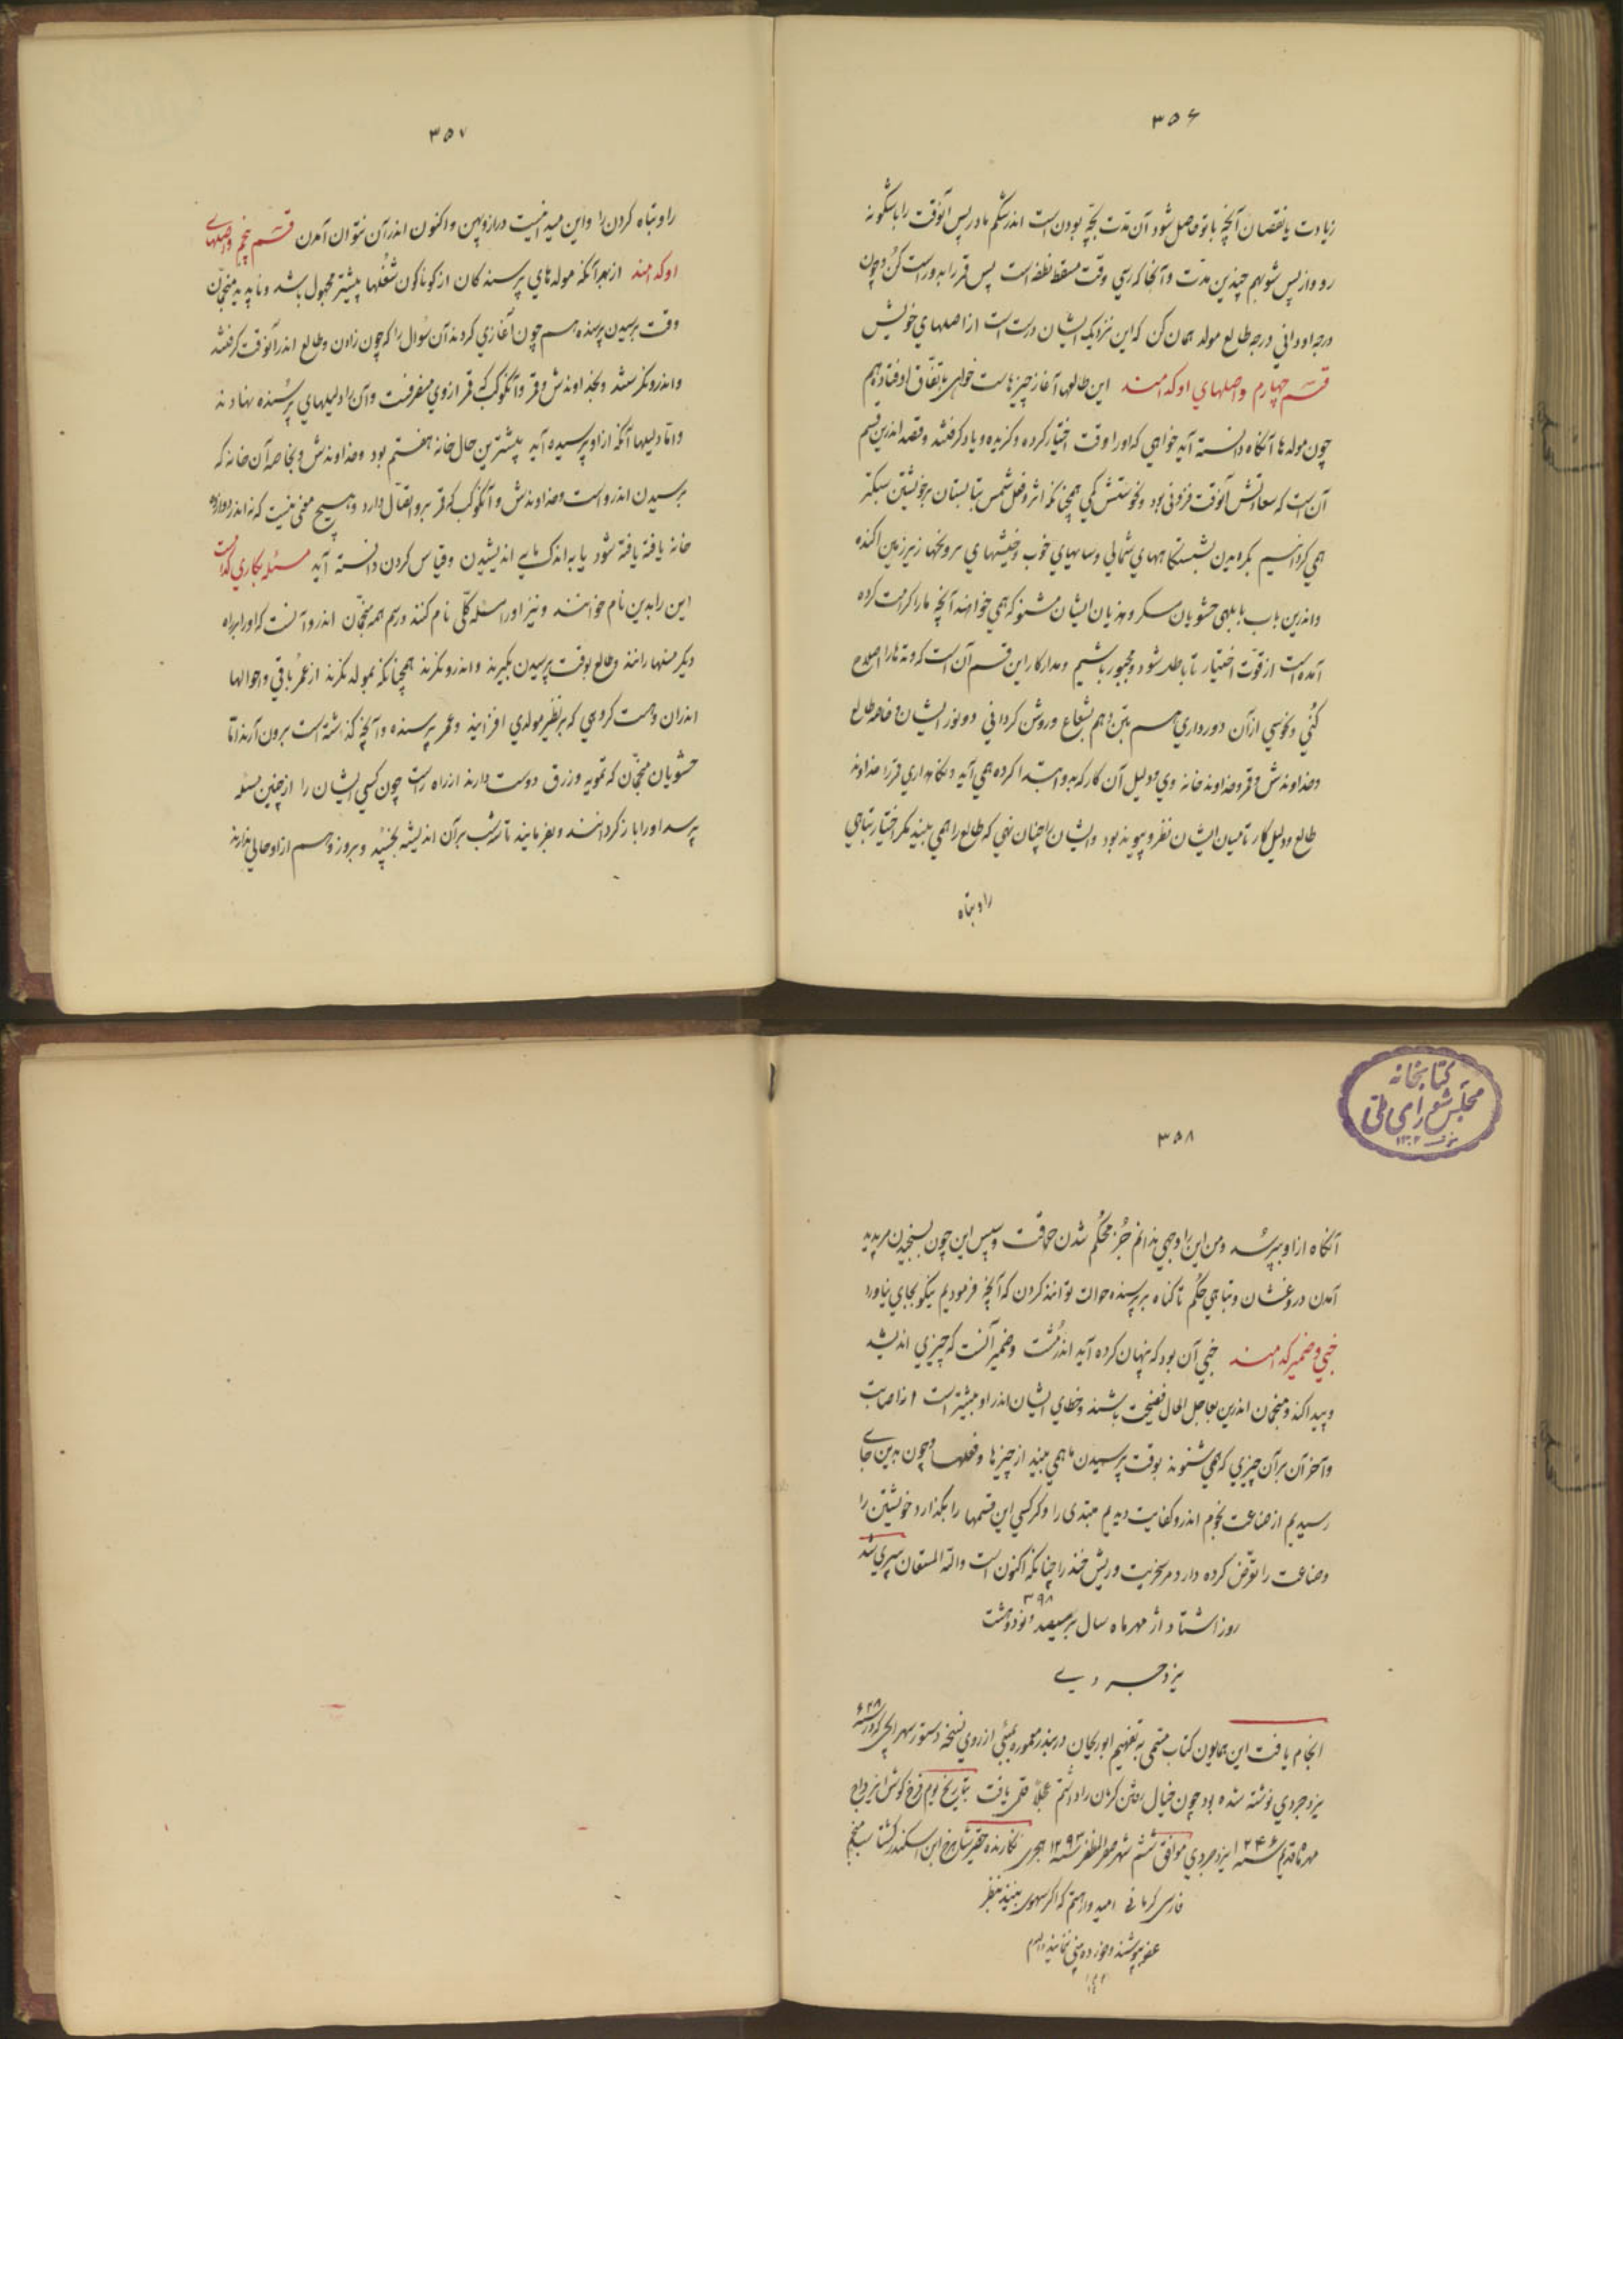 ۳۵۶
زیادت یا نقصان آنچه با تو حاصل شود آن مدت بچه بودن است اندر شکم مادر پس آنوقت را باشگونه
رو و از پس شو بهم چندین مدت و آنجا که رسی وقت مسقط نطفه است پس قمر را بدو راست کن و چون
درجه او دانی درجه طالع مولد همان کن که این نزدیک ایشان درست است از اصلهای خویش
قسم چهارم و اصلهای او کدامند این طالعها آغاز چیزهاست خواهی بتفاق اوفتاد و هم
چون مولدها آنگاه دانسته آید خواهی که او را وقت اختیار کرده و گزیده و یاد گرفتند و قصد اندرین قسم
آن است که سعادتش آنوقت فزونی بود و نحوستش کمی همچنانکه اثر و فعل شمس بتابستان بر خویشتن سبکتر
همی گردانیم بگردیدن بنشستگاههای شمالی و سایهای خوب و خیشهای تر و یخها زیر زمین آکنده
و اندرین باب بابلهی حشویان منگر و هذیان ایشان مشنو که همی خوانند آنچه ما را کرامت کرده
آمده است از قوت اختیار تا باطل شود و مجبور باشیم و مدار کار این قسم آن است که وتدها را اصلاح
کنی و نحوسی از آن دور داری هم بتن و هم بشعاع و روشن گردانی و و نور ایشان و خاصه طالع
و خداوندش و قمر و خداوند خانه وی و دلیل آن کار که بدو ابتدا کرده همی آید و نگاهداری قمر را خداوند
طالع و دلیل کار تا میان ایشان نظر و پیوند بود و ایشان را چنان نهی که طالع را همی بینند مگر اختیار تباهی
را و تباه
۳۵۷
را و تباه کردن را و این میدانیست دراز و پهن و اکنون اندر آن نتوان آمدن قسم پنجم و اصلهای
او کدامند از بهر آنکه مولدهای پرسندگان از گوناگون شغلها بیشتر مجهول باشد و ناپدید منجمان
وقت پرسیدن پرسنده هم چون آغازی کردند آن سؤال را که چون زادن و طالع اندر آنوقت گرفتند
و اندرو نگرستند و بخداوندش و قمر و آنکوکب که قمر از وی منصرفست و آن را دلیلهای پرسنده نهادند
و اما دلیلها آنکه از او پرسیده آید بیشترین حال خانه هفتم بود و خداوندش و بخاصه آن خانه که
پرسیدن اندرو است و خداوندش و آنکوکب که قمر برو اتصال دارد و هیچ معنی نیست که نه اندر دوازده
خانه یافته یافته شود یا به اندک مایه اندیشیدن و قیاس کردن دانسته آید مسئله بکاری کدام است
این را بدین نام خوانند و نیز او را مسئله کلی نام کنند و رسم همه منجمان اندرو آنست که او را براه
دیگر مسئلها رانند و طالع بوقت پرسیدن بگیرند و اندرو نگرند همچنانکه بمولد نگرند از عمر باقی و حوالها
اندران و هست گروهی که بر نظیر مولدی افزایند و عمر پرسنده و آنچه گذشته است برون آرند اما
حشویان منجمان که تمویه و زرق دوست دارند از راه راست چون کسی ایشان را از چنین مسئله
پرسد او را باز گردانند و بفرمایند تا سه شب بر آن اندیشه بخسپد و بروز وهم از او خالی ندارند
کتابخانه
مجلس شورای ملی
۳۵۸
آنگاه از او بپرسد و من این را وجهی ندانم جز محکم شدن حماقت و سپس این چون بسنجیدن مر پدید
آمدن دروغشان و تباهی حکم تا گناه بر پرسنده حوالت توانند کردن که آنچه فرمودیم نیکو بجای نیاورد
خبی و ضمیر کدامند خبی آن بود که پنهان کرده آید اندر مشت و ضمیر آنست که چیزی اندیشد
و پیدا نکند و منجمان اندرین بعاجل الحال فضیحت باشند و خطای ایشان اندر او بیشتر است از اصابت
و آخر آن بر آن چیزی که همی شنوند بوقت پرسیدن یا همی بینند از چیزها و فعلها و چون بدین جای
رسیدیم از صناعت نجوم اندرو کفایت دیدیم مبتدی را و گر کسی این قسمها را بگذارد خویشتن را
و صناعت را تعرض کرده دارد مر سخریت و ریش خند را چنانکه اکنون است والله المستعان سپری شد
۳۹۸
روز اشتاد از مهر ماه سال بر سیصد و نود و هشت
یزدجردی
انجام یافت این همایون کتاب مسمی به تفهیم ابو ریحان در بندر معموره بمبئی از روی نسخه دستور سهراب جی که در سنه ۶۴۸
یزدجردی نوشته شده بود چون خیال رفتن کرمان را داشتم عجلاً قلمی یافت بتاریخ یوم فرخ گوش ایزد واج
مهر ماه قدیم سنه ۱۲۴۶ یزدجردی موافق ششم شهر صفر المظفر سنه ۱۲۹۳ هجری نگارنده حقیر شاهرخ ابن اسکندر گشتاسب منجم
فارسی کرمانی امیدوارم که اگر سهوی بینند بنظر
عفو بپوشند و خورده بینی ننمایند والسلام